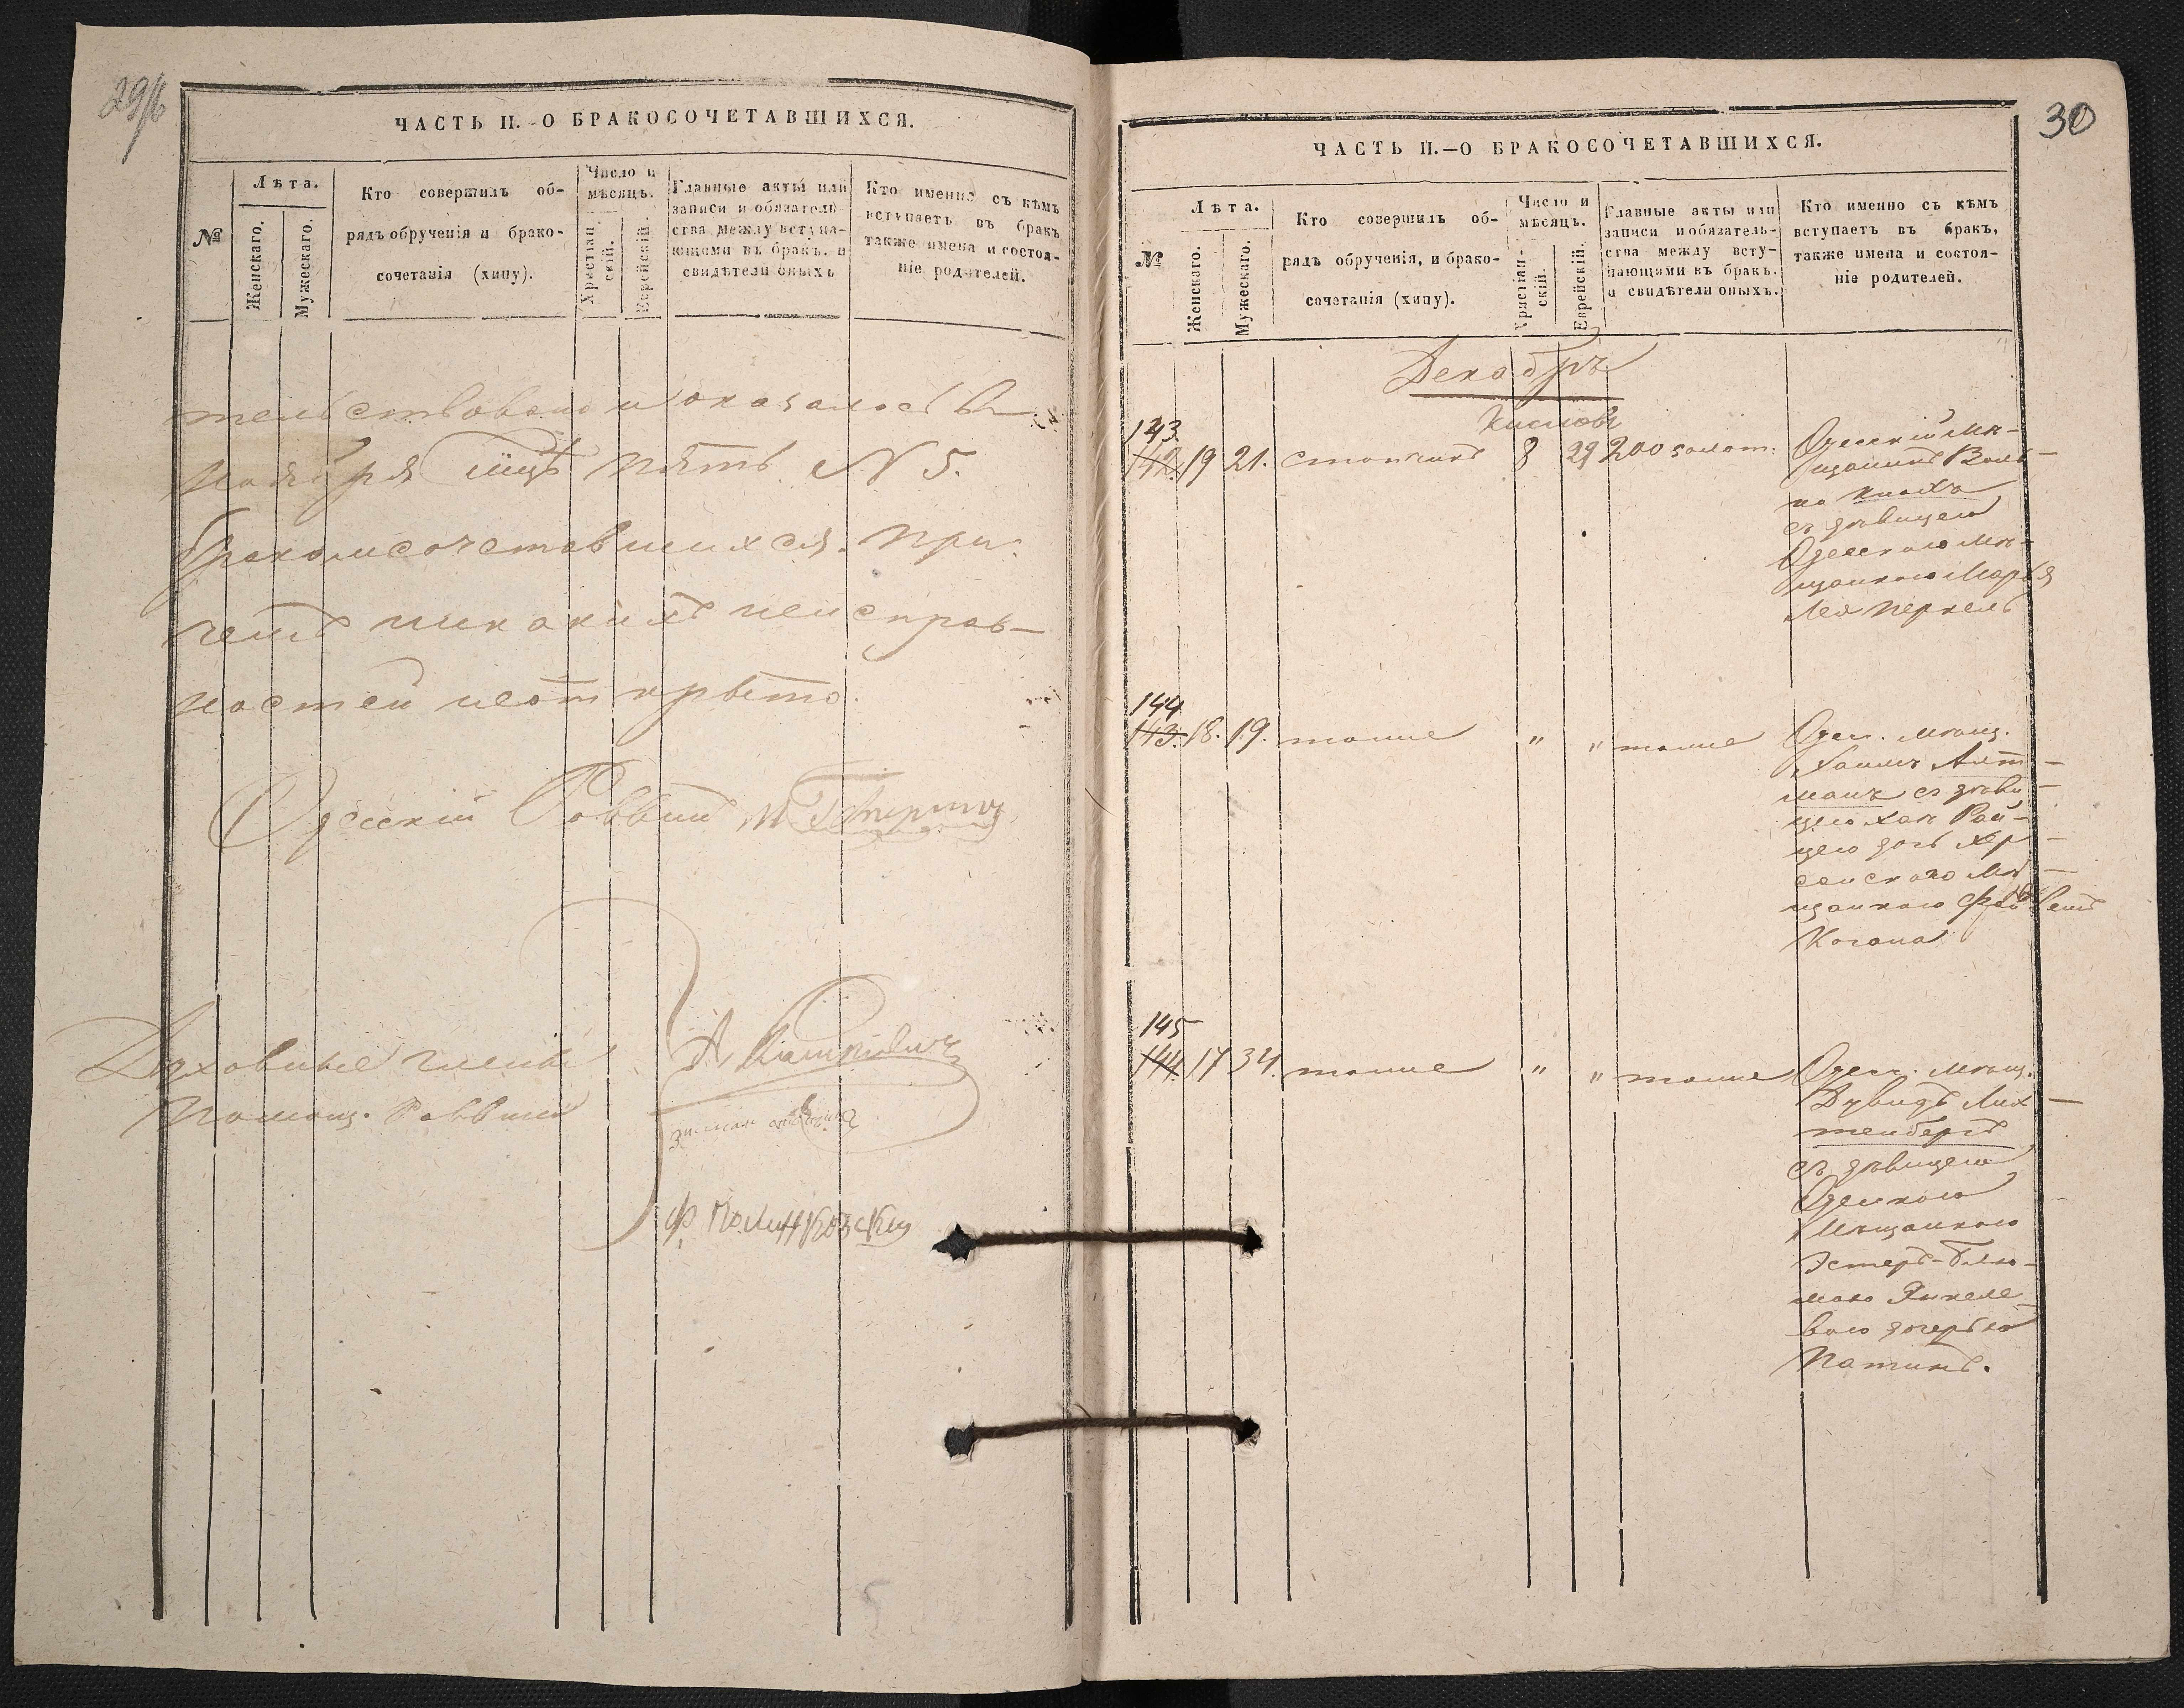 29/б
ЧАСТЬ II.-О БРАКОСОЧЕТАВШИХСЯ.
№
Лѣта.
Женскаго.
Мужескаго.
Кто совершилъ об-
рядъ обрученія и брако-
сочетанія (хипу).
Число и
мѣсяцъ.
Христіан-
скій.
Еврейскій.
Главные акты или
записи и обязатель-
ства между вступа-
ющими въ бракъ, и
свидѣтели оныхъ
Кто именно съ кѣмъ
вступаетъ въ бракъ
также имена и состоя-
ніе родителей.
тельствовано и оказалось въ
Ноябрѣ мцѣ пять № 5.
бракомсочетавшихся. При
чемъ никакихъ неисправ-
ностей неоткрыто.
Одесскій Раввинъ
Духовные члены
Помощ. Раввина
30
ЧАСТЬ II.—О БРАКОСОЧЕТАВШИХСЯ.
№
Лѣта.
Женскаго.
Мужескаго.
Кто совершилъ об-
рядъ обрученія, и брако-
сочетанія (хипу).
Число и
мѣсяцъ.
Христіан-
скій.
Еврейскій.
Главные акты или
записи и обязатель-
ства между всту-
пающими въ бракъ.
и свидѣтели оныхъ.
Кто именно съ кѣмъ
вступаетъ въ бракъ,
также имена и состоя-
ніе родителей.
Декабрь
Кислевъ
143
142. 19 21. 8 29 200 золот. Одесскій мѣ-
щанинъ
съ дѣвицею
Одесскою мѣ-
щанкою
Лея Перкель
144
143. 18. 19. тоиже " " тоиже Одес. мѣщ.
Хаимъ Алт-
манъ съ дѣви-
цею Хая Рай-
цею дочь Хер-
сонского мѣ-
щанкою
Когана
145
144. 17 34. тоиже " " тоиже Одес. мѣщ.
Дувидъ Лих-
тенбергъ
съ дѣвицею
Одесскою
Мѣщанкою
Эстеръ-Блю-
мою Янкеле-
вою дочерью